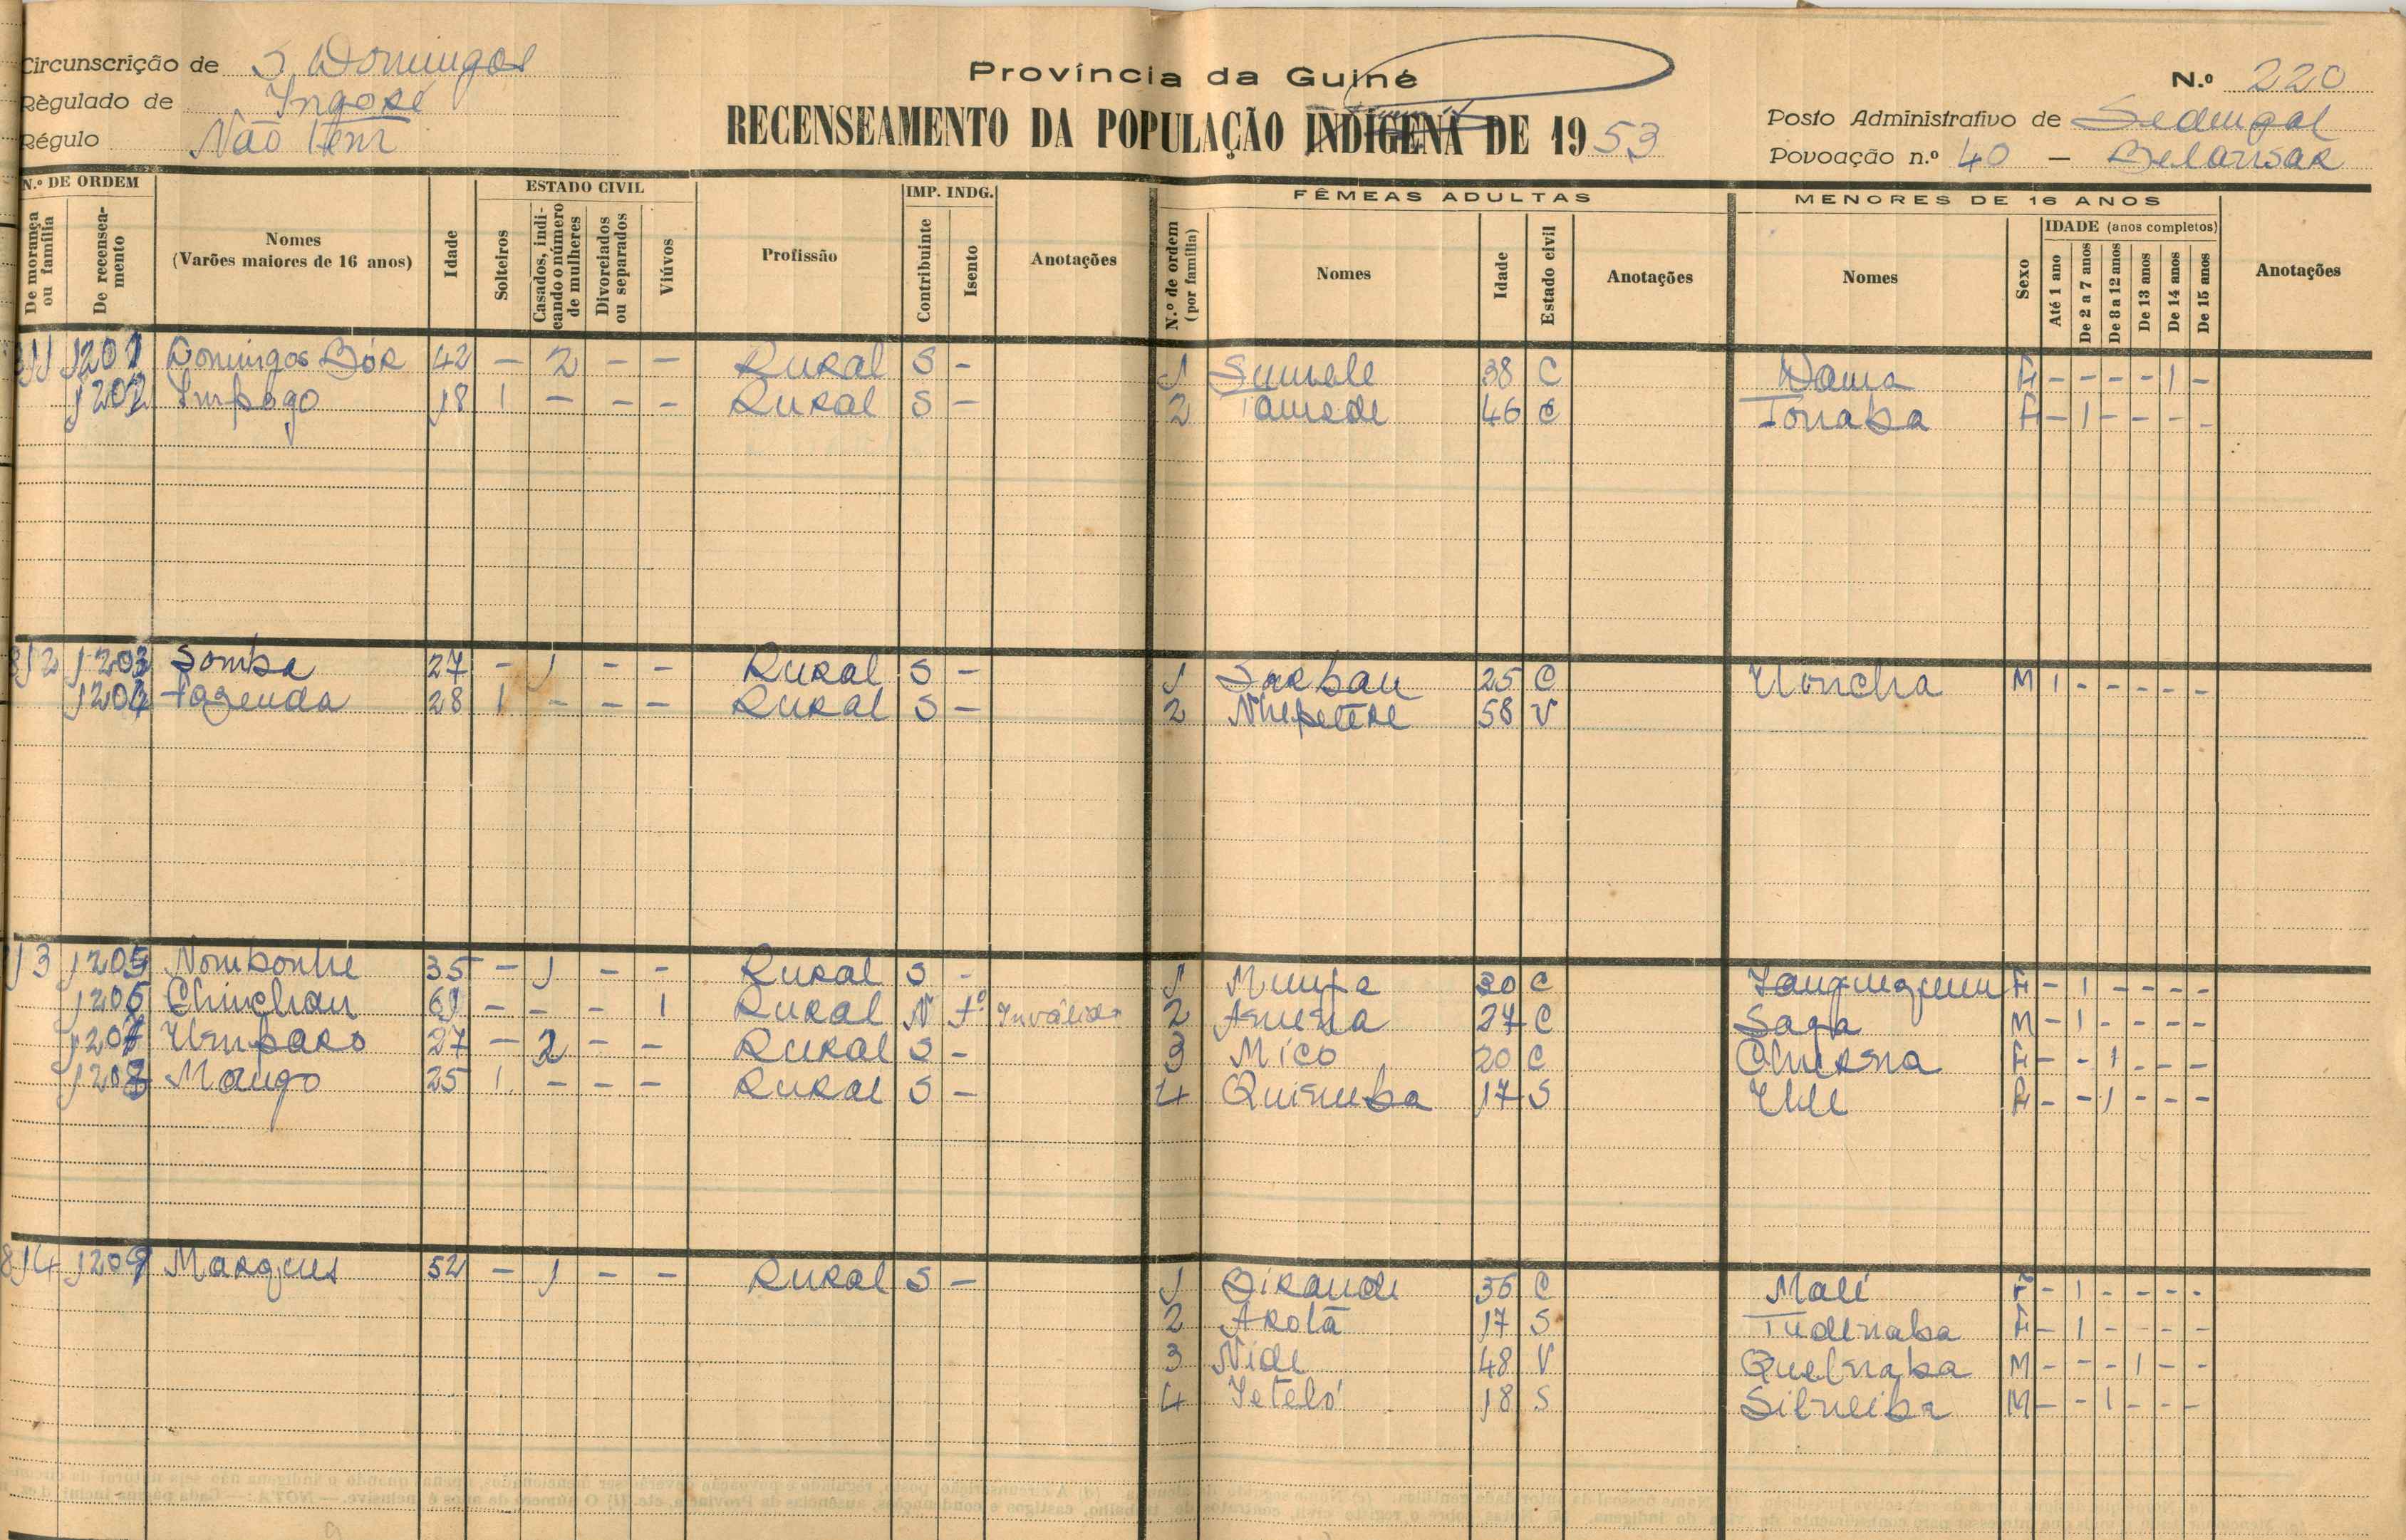 Circunscrição de S. Domingos
Régulado de Ingoré
Régulo Não tem
Província da Guiné
RECENSEAMENTO DA POPULAÇÃO INDÍGENA DE 1953
N.º 220
Posto Administrativo de Sedengal
Povoação n.º 40 - Belansar
N.º DE ORDEM
De morança ou família
De recenseamento
Nomes
(Varões maiores de 16 anos)
Idade
ESTADO CIVIL
Solteiros
Casados, indicando o número de mulheres
Divorciados ou separados
Viúvos
Profissão
IMP. INDG.
Contribuinte
Isento
Anotações
FÊMEAS ADULTAS
N.º de ordem (por família)
Nomes
Idade
Estado civil
Anotações
MENORES DE 16 ANOS
Nomes
Sexo
IDADE (anos completos)
Até 1 ano
De 2 a 7 anos
De 8 a 12 anos
De 13 anos
De 14 anos
De 15 anos
Anotações
1201 Domingos Bór 42 - 2 - - Rural S - 1 Sumele 38 C Dama F - - - - 1 -
1202 Impogo 18 1 - - - Rural S - 2 Tamede 46 C Tonaba F - 1 - - - -
812 1203 Somba 27 - 1 - - Rural S - 1 Sarbau 25 C Uoncha M 1 - - - - -
1204 Fazenda 28 1 - - - Rural S - 2 58 V
1205 Nombonhe 35 - 1 - - Rural S - 1 30 C F - 1 - - - -
1206 Chinchau - - - 1 Rural N Inválido 2 27 C Saga M - 1 - - - -
1207 Umparo 27 - 2 - - Rural S - 3 Mico 20 C F - - 1 - - -
1208 Mango 25 1 - - - Rural S - 4 Quinumba 17 S F - - 1 - - -
814 1209 Marques 52 - 1 - - Rural S - 1 Birande 36 C Malé F - 1 - - - -
2 Arotã 17 S Tudenaba F - 1 - - - -
3 Nide 48 V Quelnaba M - - - 1 - -
4 Jeteló 18 S M - - 1 - - -